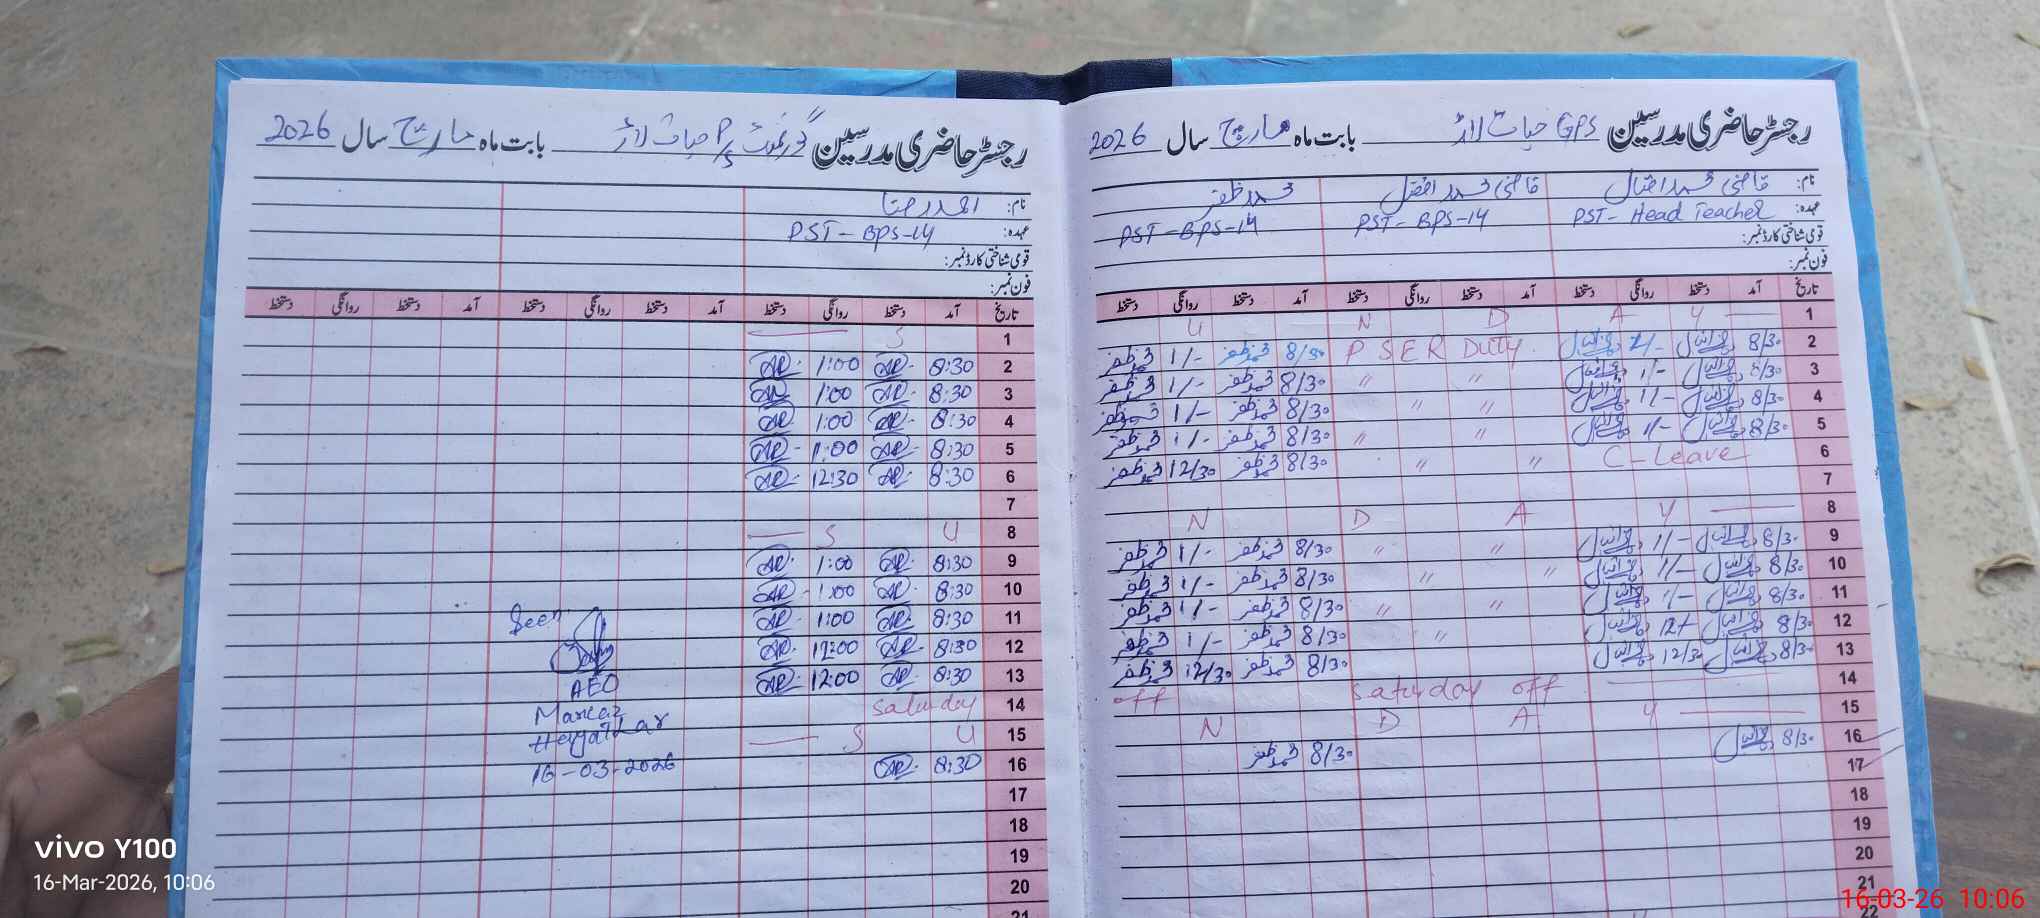 رجسٹر حاضری مدرسین GPS حیات لاڑ بابت ماہ مارچ سال 2026
نام: قاضی محمد اقبال قاضی محمد افضل محمد ظفر
عہدہ: PST - Head Teacher PST - BPS-14 PST - BPS-14
قومی شناختی کارڈ نمبر:
فون نمبر:
تاریخ آمد دستخط روانگی دستخط آمد دستخط روانگی دستخط آمد دستخط روانگی دستخط
1 U N D A Y
2 8/30 1/- PSER Duty 8/30 محمد ظفر 1/- محمد ظفر
3 8/30 1/- " " 8/30 محمد ظفر 1/- محمد ظفر
4 8/30 1/- " " 8/30 محمد ظفر 1/- محمد ظفر
5 8/30 1/- " " 8/30 محمد ظفر 1/- محمد ظفر
6 C-Leave " " 8/30 محمد ظفر 12/30 محمد ظفر
7
8 N D A Y
9 8/30 1/- " " 8/30 محمد ظفر 1/- محمد ظفر
10 8/30 1/- " " 8/30 محمد ظفر 1/- محمد ظفر
11 8/30 1/- " " 8/30 محمد ظفر 1/- محمد ظفر
12 8/30 " 8/30 محمد ظفر 1/- محمد ظفر
13 8/30 12/30 8/30 محمد ظفر 12/30 محمد ظفر
14 off Saturday off
15 N D A Y
16 8/30 8/30 محمد ظفر
17
18
19
20
21
22
رجسٹر حاضری مدرسین گورنمنٹ P/S حیات لاڑ بابت ماہ مارچ سال 2026
نام: احمد رضا
عہدہ: PST - BPS-14
قومی شناختی کارڈ نمبر:
فون نمبر:
تاریخ آمد دستخط روانگی دستخط آمد دستخط روانگی دستخط آمد دستخط روانگی دستخط
1 S
2 8:30 AR 1:00 AR
3 8:30 AR 1:00 AR
4 8:30 AR 1:00 AR
5 8:30 AR 1:00 AR
6 8:30 AR 12:30 AR
7
8 S U
9 8:30 AR 1:00 AR
10 8:30 AR 1:00 AR
11 8:30 AR 1:00 AR
12 8:30 AR 12:00 AR
13 8:30 AR 12:00 AR
14 Saturday
15 S U
16 8:30 AR
17
18
19
20
21
Seen
AEO
Markaz
Hayat Lar
16-03-2026
vivo Y100
16-Mar-2026, 10:06
16-03-26 10:06